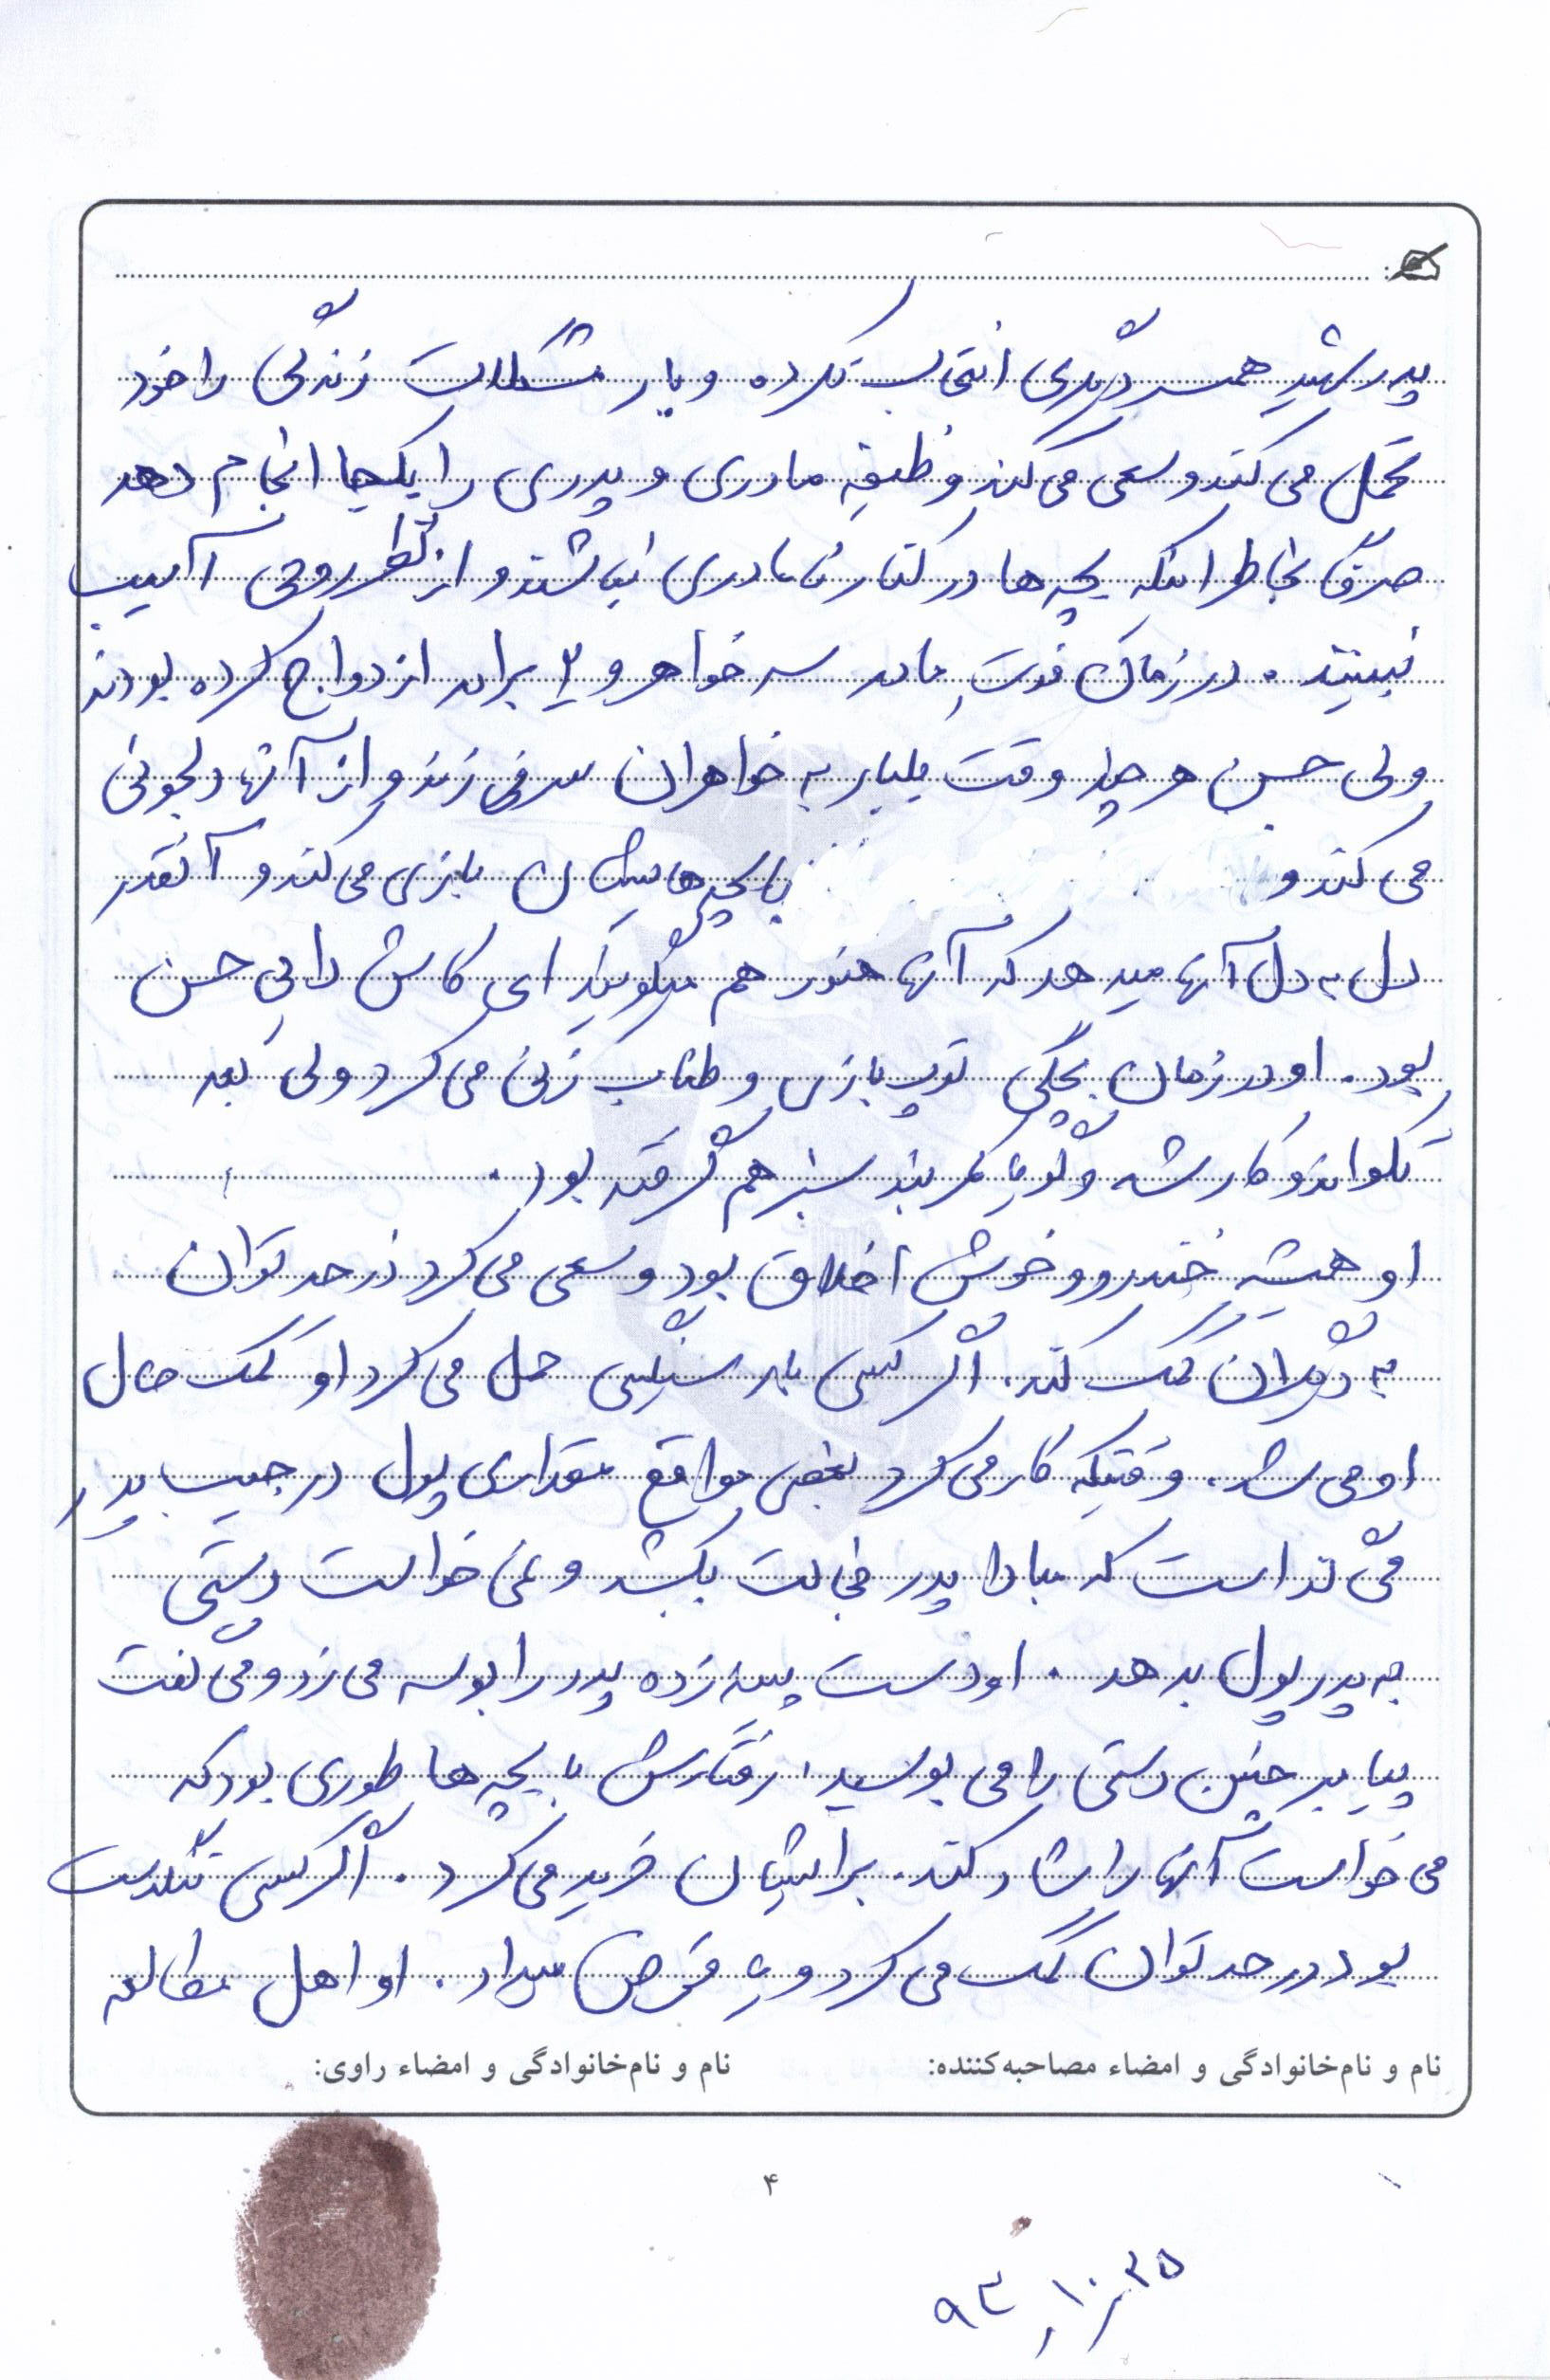 پدر شهید همسر دیگری انتخاب نکرده و بار مشکلات زندگی را خود
تحمل می کند و سعی می کند وظیفه مادری و پدری را یکجا انجام دهد
صرفاً بخاطر اینکه بچه ها در کنار نامادری نباشند و از نظر روحی آسیب
نبینند. در زمان فوت مادر سه خواهر و ۲ برادر ازدواج کرده بودند
ولی حسن هر چند وقت یکبار به خواهران سر می زند و از آنها دلجوئی
می کند و با بچه هایشان بازی می کند و آنقدر
دل به دل آنها میدهد که آنها هنوز هم میگویند ای کاش دایی حسن
بود. او در زمان بچگی توپ بازی و طناب زنی می کرد ولی بعد
تکواندو کار شد و گویا کمربند سبز هم گرفته بود.
او همیشه خندرو و خوش اخلاق بود و سعی می کرد در حد توان
به دیگران کمک کند. اگر کسی بار سنگینی حمل می کرد او کمک حال
او می شد. وقتیکه کار می کرد بعضی مواقع مقداری پول در جیب پدر
می گذاشت که مبادا پدر خجالت بکشد و نمی خواست دستی
به پدر پول بدهد. او دست پینه زده پدر را بوسه می زد و می گفت
پیامبر چنین دستی را می بوسید. رفتارش با بچه ها طوری بود که
می خواست آنها را شاد کند. برایشان خرید می کرد. اگر کسی تنگدست
بود در حد توان کمک می کرد و به قرض میداد. او اهل مطالعه
نام و نام‌خانوادگی و امضاء مصاحبه‌کننده: نام و نام‌خانوادگی و امضاء راوی:
۴
۹۳/۱۰/۲۵